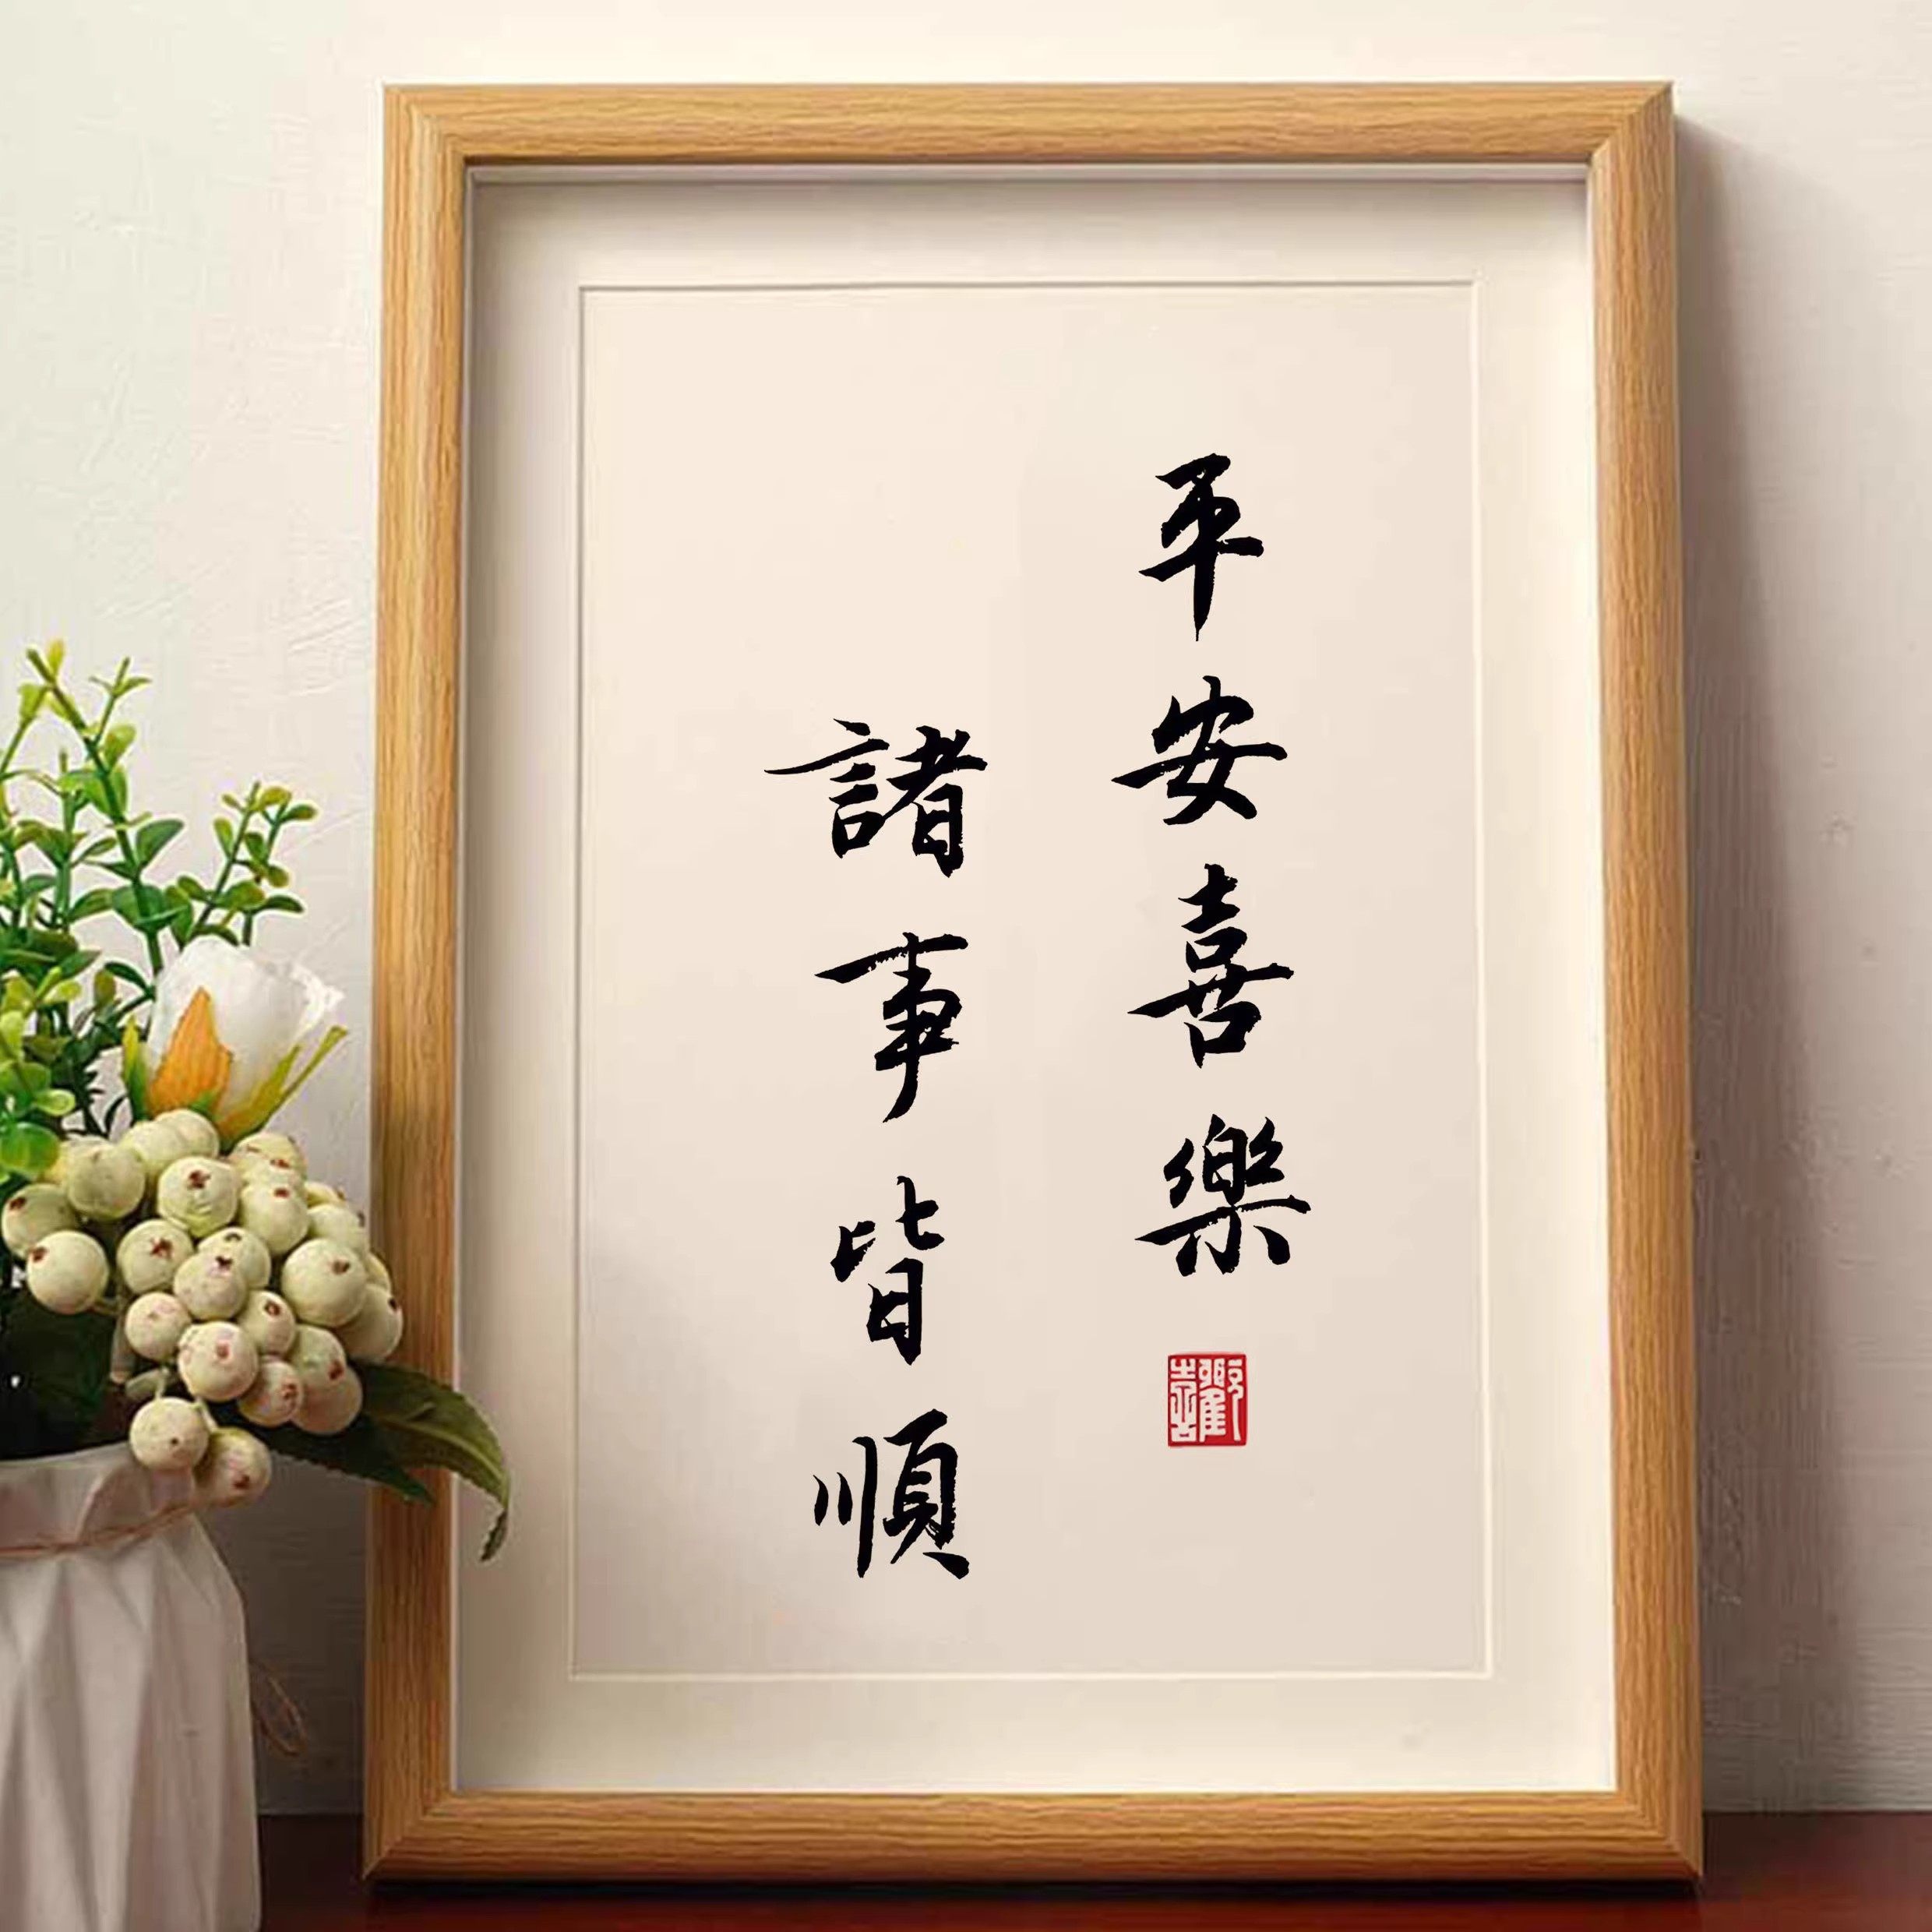 平安喜樂
諸事皆順
歡喜